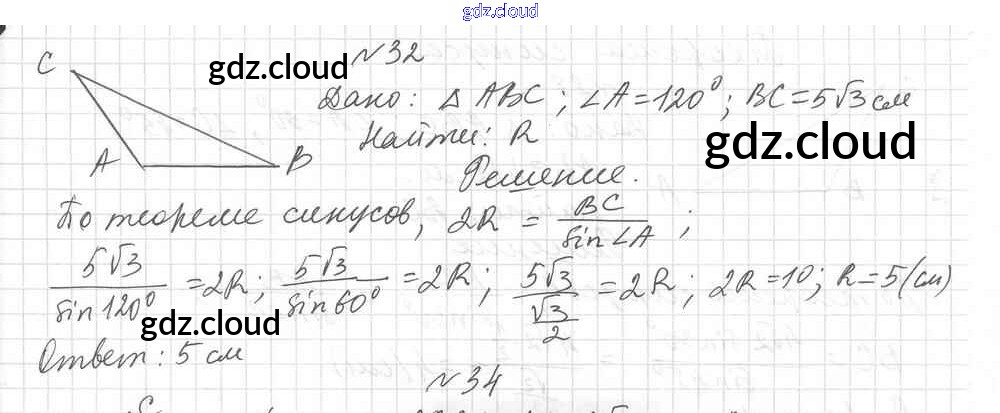 gdz.cloud
C gdz.cloud №32
Дано: △ ABC; ∠A=120⁰; BC=5√3 см
Найти: R gdz.cloud
A B
Решение.
По теореме синусов, 2R = BC/sin∠A;
5√3/sin120⁰ = 2R; 5√3/sin60⁰ = 2R; 5√3/(√3/2) = 2R; 2R=10; R=5(см)
gdz.cloud
Ответ: 5 см
№34